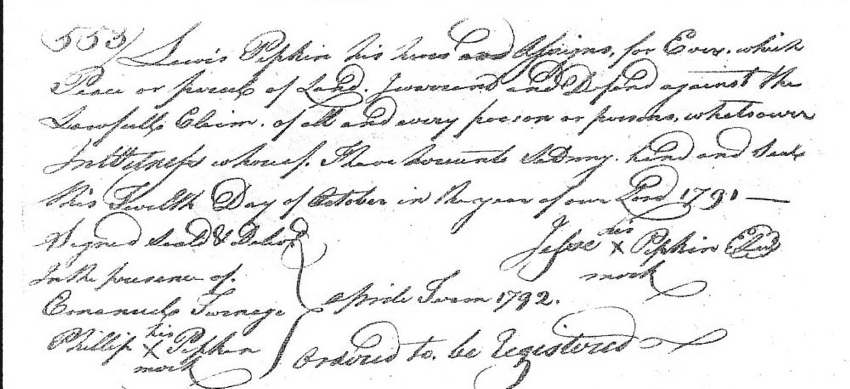 553/ Lewis Pipkin his heres and Assigns, for Ever. which
Peace or parcel of Land. I warrant and Defend against the
Lawfull Claim. of all and every person or persons, whatsoever
In Witness whereof. I have hereunto Set my hand and Seal
this Twelth Day of October in the year of our Lord 1791 —
Signed Seald &
Jesse his X mark Pipkin
In the presence of.
Emanuel Turnage
Aprile Term 1792.
Phillip his X mark Pipkin
Ordered to. be Registered